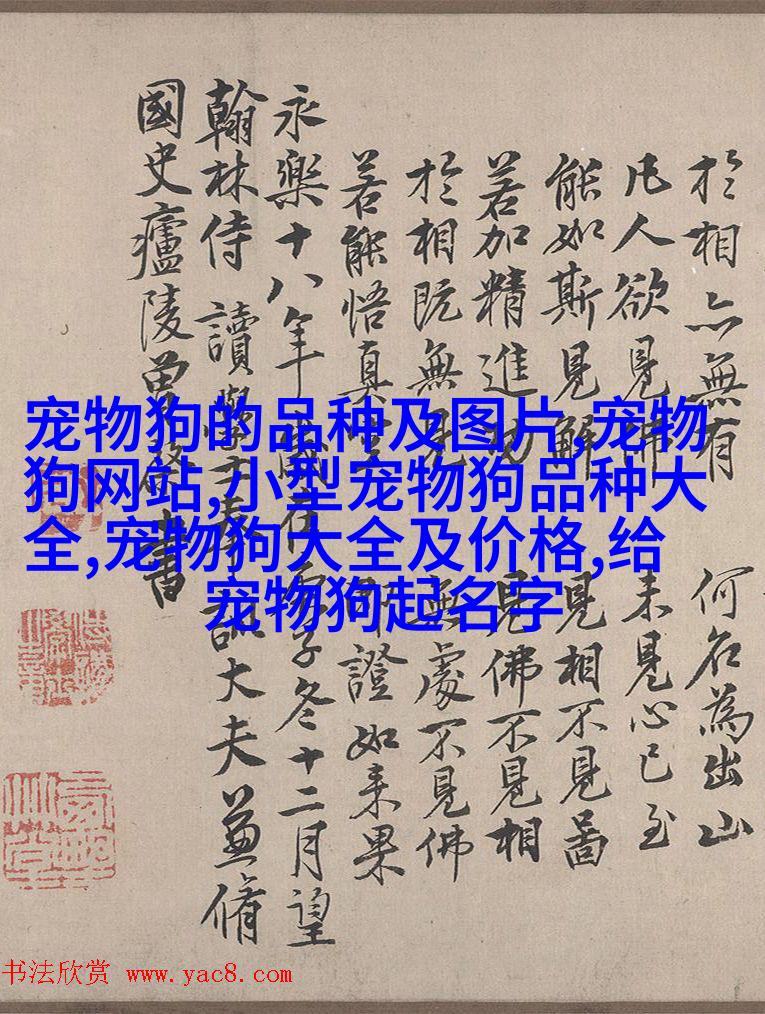 於相亦無有 何名為出山
凡人欲見佛 未見心已至
能如斯見解 見相不見啚
若加精進功 見佛不見相
於相既無見 無處不見佛
若能悟真空 即證如来果
永樂十八年歲在庚子冬十二月望
翰林侍讀學士奉訓大夫兼脩
國史廬陵曾棨書
宠物狗的品种及图片,宠物
狗网站,小型宠物狗品种大
全,宠物狗大全及价格,给
宠物狗起名字
书法欣赏 www.yac8.com